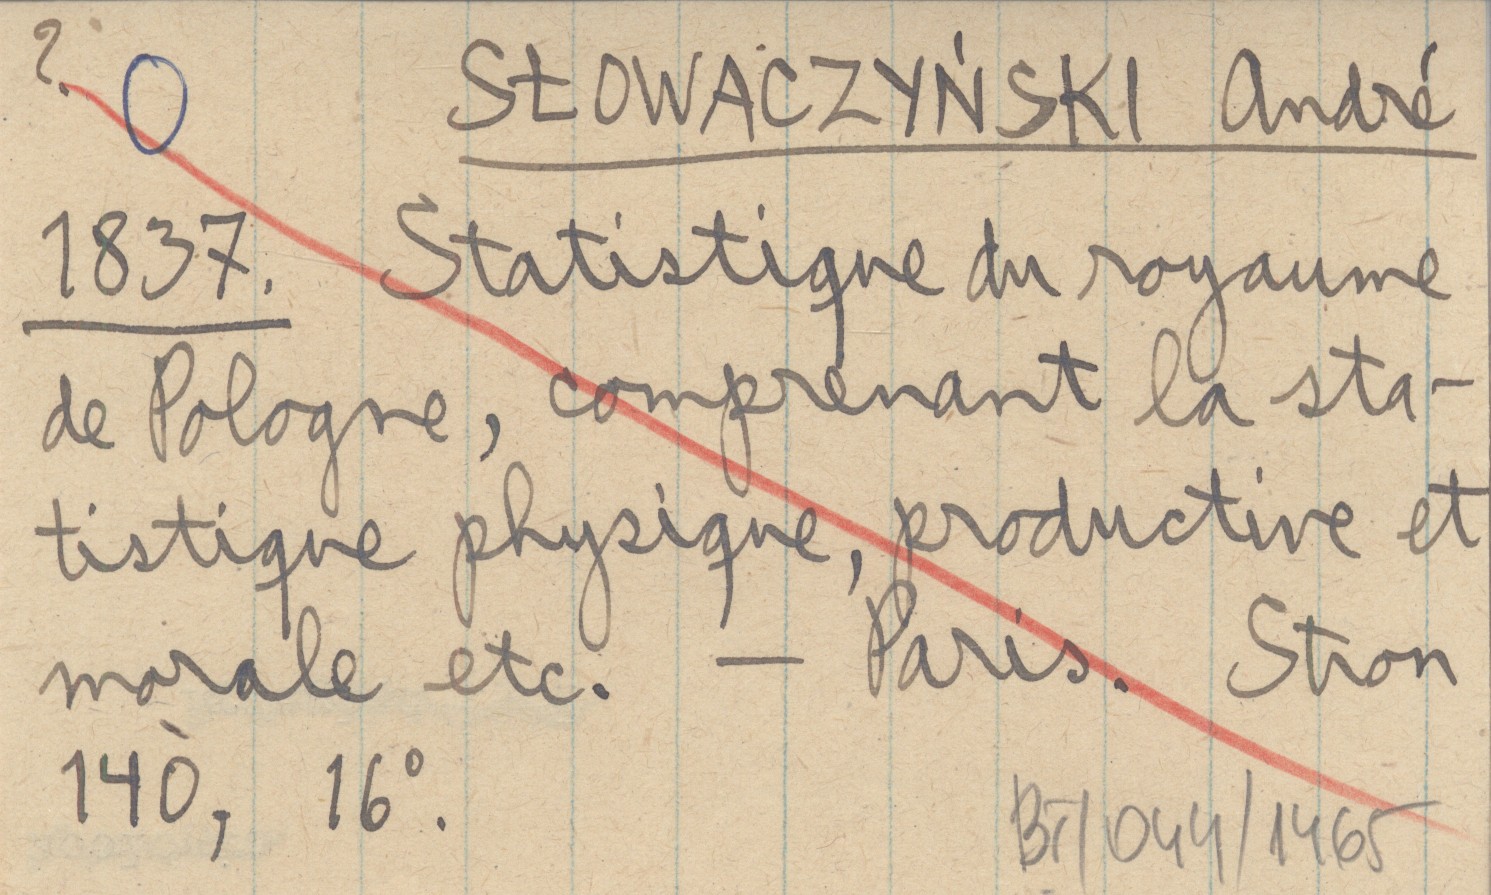 ?. O SŁOWACZYŃSKI André
1837. Statistique du royaume
de Pologne, comprenant la sta-
tistique physique, productive et
morale etc. — Paris. Stron
140, 16°.
BT/044/1465